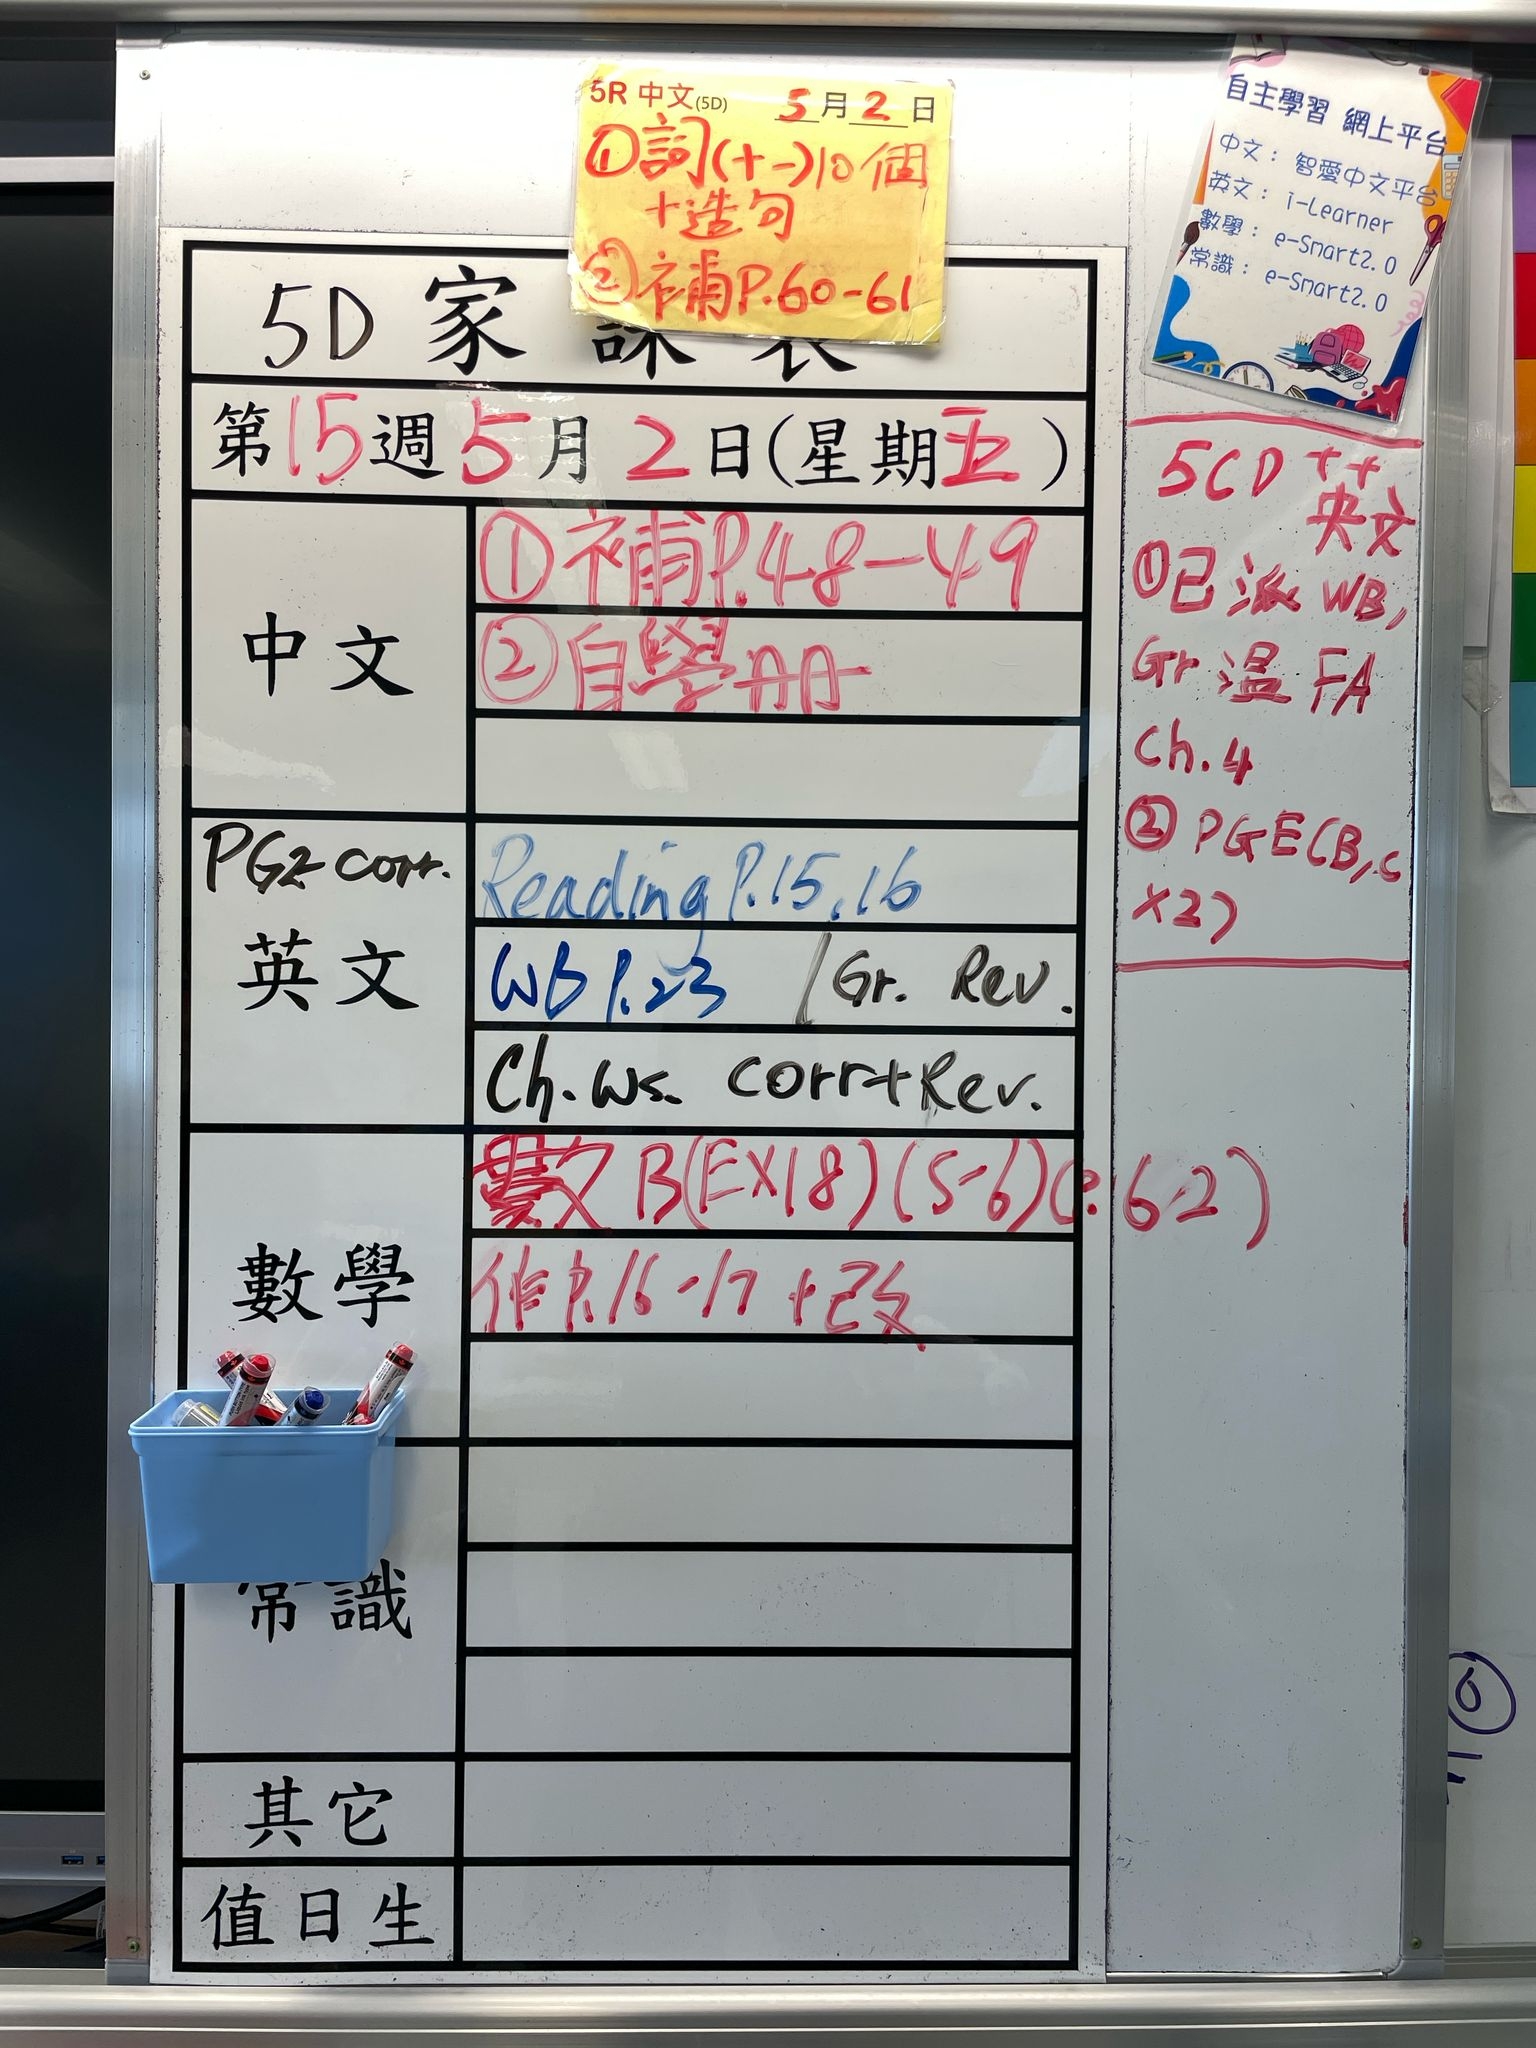 5R 中文(5D) 5月2日
①詞(十一)10個
+造句
②補P.60-61
自主學習 網上平台
中文： 智愛中文平台
英文： i-Learner
數學： e-Smart2.0
常識： e-Smart2.0
5D 家課表
第15週5月2日(星期五)
中文
①補P.48-49
②自學冊
PG2 corr.
英文
Reading P.15,16
WB P.23 / Gr. Rev.
Ch.Ws. corr+Rev.
數學
數B(EX18)(5-6)(P.62)
作P.16-17+改
常識
其它
值日生
5CD 英文
①已派WB,
Gr 溫 FA
Ch.4
②PGE(B,C
X2)